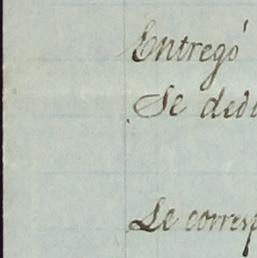 Entregó
Se dedu
Le corresp